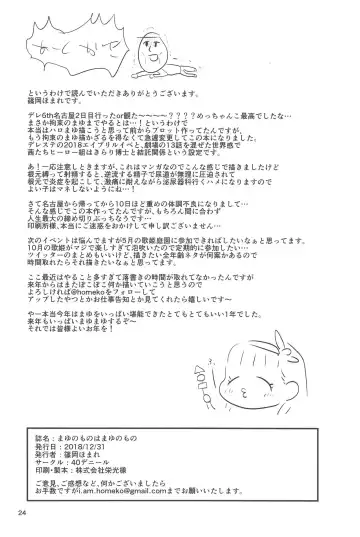 というわけで読んでいただきありがとうございます。
篠岡ほまれです。
デレ6th名古屋2日目行ったor観た～～～～？？？？めっちゃんこ最高でしたな…
まさか拘束のまゆまでやるとは…！というわけで
本当はハロまゆ描こうと思って前からプロット作ってたんですが、
もう拘束のまゆ描かざるを得なくて急遽変更してこの本になりました。
デレステの2018エイプリルイベと、劇場の13話を混ぜた世界感で
茜たちヒーロー組はきらり博士と結託関係という設定です。
あ！一応注意しときますが、これはマンガなのでこんな感じで描きましたけど
根元縛って射精させると、逆流する精子で尿道が無理に圧迫されて
根元で炎症を起こして、激痛に耐えながら泌尿器科行くハメになりますので
よい子はマネしないようにね…！
さて名古屋から帰ってから10日ほど重めの体調不良になりまして…
そんな感じでこの本作ってたんですが、もちろん間に合わず
人生最大の締め切りぶっちになりました…
印刷所様、本当にご迷惑をおかけして申し訳ございません…
次のイベントは悩んでますが5月の歌姫庭園に参加できればしたいなぁと思ってます。
10月の歌姫がマジで楽しすぎて泡吹いたので定期的に参加したい…
ツイッターのまとめもいいけど、描きたい全年齢ネタが何案かあるので
時間取れたらそれ描きたいなぁと思ってます。
ここ最近はやること多すぎて落書きの時間が取れてなかったんですが
来年からはまたぽこぽこ何か描いていこうと思うので
よろしければ@homekoをフォローして
アップしたやつとかお仕事告知とか見てくれたら嬉しいです～
や一本当今年はまゆをいっぱい堪能できたとてもとてもいい1年でした。
来年もいっぱいまゆまゆするぞ～
それでは皆様よいお年を！
誌名：まゆのものはまゆのもの
発行日：2018/12/31
発行者：篠岡ほまれ
サークル：40デニール
印刷・製本：株式会社栄光様
ご意見、ご感想など、何かございましたら
お手数ですがi.am.homeko@gmail.comまでお願いいたします。
24